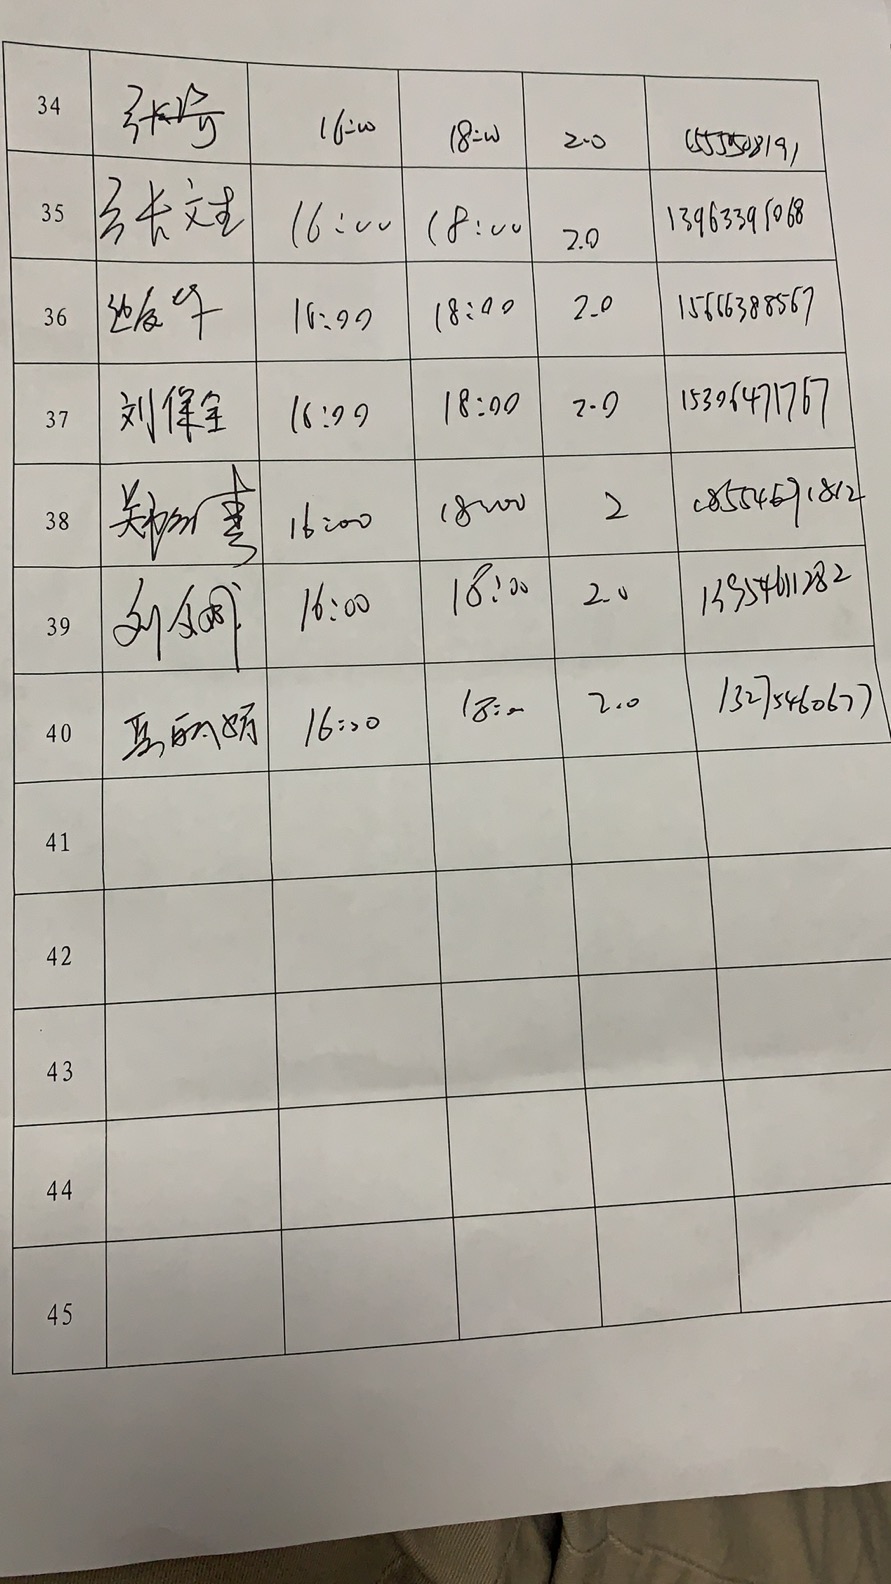 34 16:00 18:00 2.0
35 张文生 16:00 18:00 2.0 13963395068
36 16:00 18:00 2.0 15666388567
37 刘保全 16:00 18:00 2.0 15306471767
38 16:00 18:00 2 18554691812
39 16:00 18:00 2.0 13954611282
40 16:00 18:00 2.0 13275460677
41
42
43
44
45